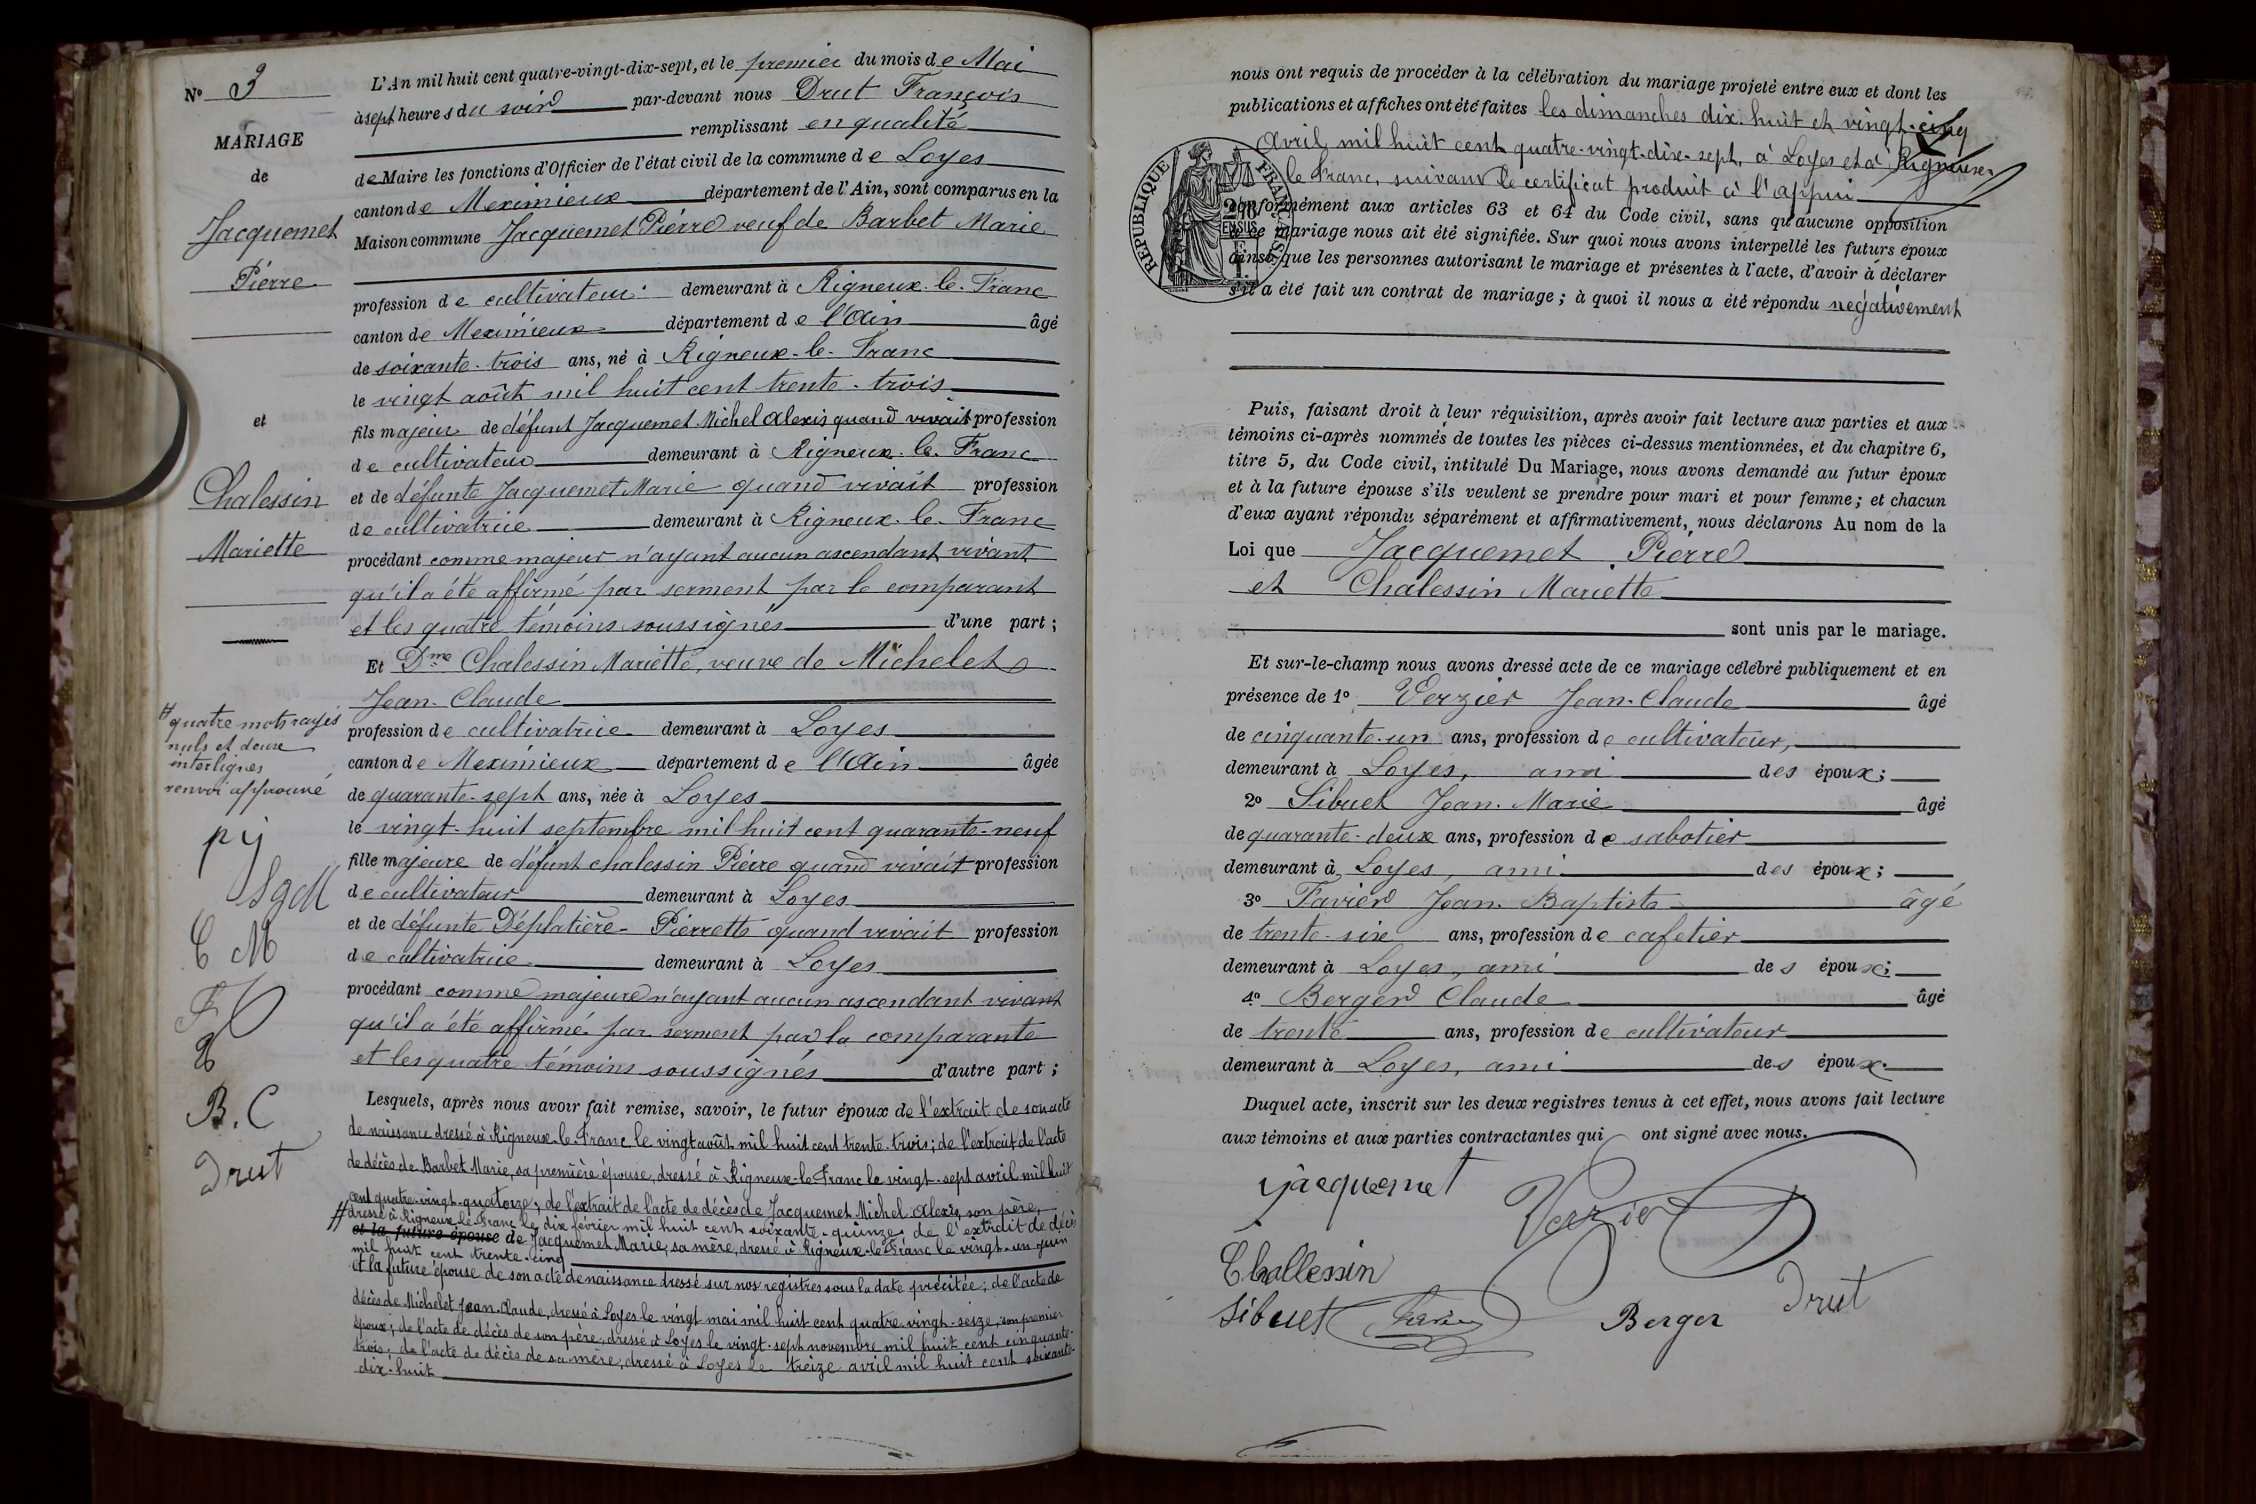 N° 3
MARIAGE
de
Jacquemet
Pierre
et
Chalessin
Mariette
# quatre mots rayés
nuls et deux
interlignes
renvoi approuvé
pj
SgM
C M
F
B. C
Drut
L'An mil huit cent quatre-vingt-dix-sept, et le premier du mois de Mai
à sept heures du soir par-devant nous Drut François
remplissant en qualité
de Maire les fonctions d'Officier de l'état civil de la commune de Loyes
canton de Meximieux département de l'Ain, sont comparus en la
Maison commune Jacquemet Pierre veuf de Barbet Marie
profession de cultivateur demeurant à Rigneux-le-Franc
canton de Meximieux département de l'Ain âgé
de soixante-trois ans, né à Rigneux-le-Franc
le vingt août mil huit cent trente-trois
fils majeur de défunt Jacquemet Michel Alexis quand vivait profession
de cultivateur demeurant à Rigneux-le-Franc
et de défunte Jacquemet Marie quand vivait profession
de cultivatrice demeurant à Rigneux-le-Franc
procédant comme majeur n'ayant aucun ascendant vivant
qu'il a été affirmé par serment par le comparant
et les quatre témoins soussignés d'une part ;
Et Dme Chalessin Mariette, veuve de Michelet
Jean-Claude
profession de cultivatrice demeurant à Loyes
canton de Meximieux département de l'Ain âgée
de quarante-sept ans, née à Loyes
le vingt-huit septembre mil huit cent quarante-neuf
fille majeure de défunt Chalessin Pierre quand vivait profession
de cultivateur demeurant à Loyes
et de défunte Déplatière Pierrette quand vivait profession
de cultivatrice demeurant à Loyes
procédant comme majeure n'ayant aucun ascendant vivant
qu'il a été affirmé par serment par la comparante
et les quatre témoins soussignés d'autre part ;
Lesquels, après nous avoir fait remise, savoir, le futur époux de l'extrait de son acte
de naissance dressé à Rigneux-le-Franc le vingt août mil huit cent trente-trois ; de l'extrait de l'acte
de décès de Barbet Marie, sa première épouse, dressé à Rigneux-le-Franc le vingt-sept avril mil huit
cent quatre-vingt-quatorze ; de l'extrait de l'acte de décès de Jacquemet Michel Alexis, son père,
# dressé à Rigneux-le-Franc le dix février mil huit cent soixante-quinze de l'extrait de décès
et la future épouse de Jacquemet Marie, sa mère, dressé à Rigneux-le-Franc le vingt-un juin
mil huit cent trente-cinq
et la future épouse de son acte de naissance dressé sur nos registres sous la date précitée ; de l'acte de
décès de Michelet Jean-Claude, dressé à Loyes le vingt mai mil huit cent quatre-vingt-seize, son premier
époux ; de l'acte de décès de son père, dressé à Loyes le vingt-sept novembre mil huit cent cinquante-
trois ; de l'acte de décès de sa mère, dressé à Loyes le treize avril mil huit cent soixante-
dix-huit
nous ont requis de procéder à la célébration du mariage projeté entre eux et dont les
publications et affiches ont été faites les dimanches dix-huit et vingt-cinq
Avril mil huit cent quatre-vingt-dix-sept, à Loyes et à Rigneux-
le Franc, suivant le certificat produit à l'appui
conformément aux articles 63 et 64 du Code civil, sans qu'aucune opposition
à ce mariage nous ait été signifiée. Sur quoi nous avons interpellé les futurs époux
ainsi que les personnes autorisant le mariage et présentes à l'acte, d'avoir à déclarer
s'il a été fait un contrat de mariage ; à quoi il nous a été répondu négativement
RÉPUBLIQUE FRANÇAISE
Puis, faisant droit à leur réquisition, après avoir fait lecture aux parties et aux
témoins ci-après nommés de toutes les pièces ci-dessus mentionnées, et du chapitre 6,
titre 5, du Code civil, intitulé Du Mariage, nous avons demandé au futur époux
et à la future épouse s'ils veulent se prendre pour mari et pour femme ; et chacun
d'eux ayant répondu séparément et affirmativement, nous déclarons Au nom de la
Loi que Jacquemet Pierre
et Chalessin Mariette
sont unis par le mariage.
Et sur-le-champ nous avons dressé acte de ce mariage célébré publiquement et en
présence de 1° Verzier Jean-Claude âgé
de cinquante-un ans, profession de cultivateur,
demeurant à Loyes, ami des époux ;
2° Sibuet Jean-Marie âgé
de quarante-deux ans, profession de sabotier
demeurant à Loyes, ami des époux ;
3° Favier Jean-Baptiste âgé
de trente-six ans, profession de cafetier
demeurant à Loyes, ami des époux ;
4° Berger Claude âgé
de trente ans, profession de cultivateur
demeurant à Loyes, ami des époux.
Duquel acte, inscrit sur les deux registres tenus à cet effet, nous avons fait lecture
aux témoins et aux parties contractantes qui ont signé avec nous.
jacquemet
Verzier
Challessin
Sibuet Favier Berger Drut